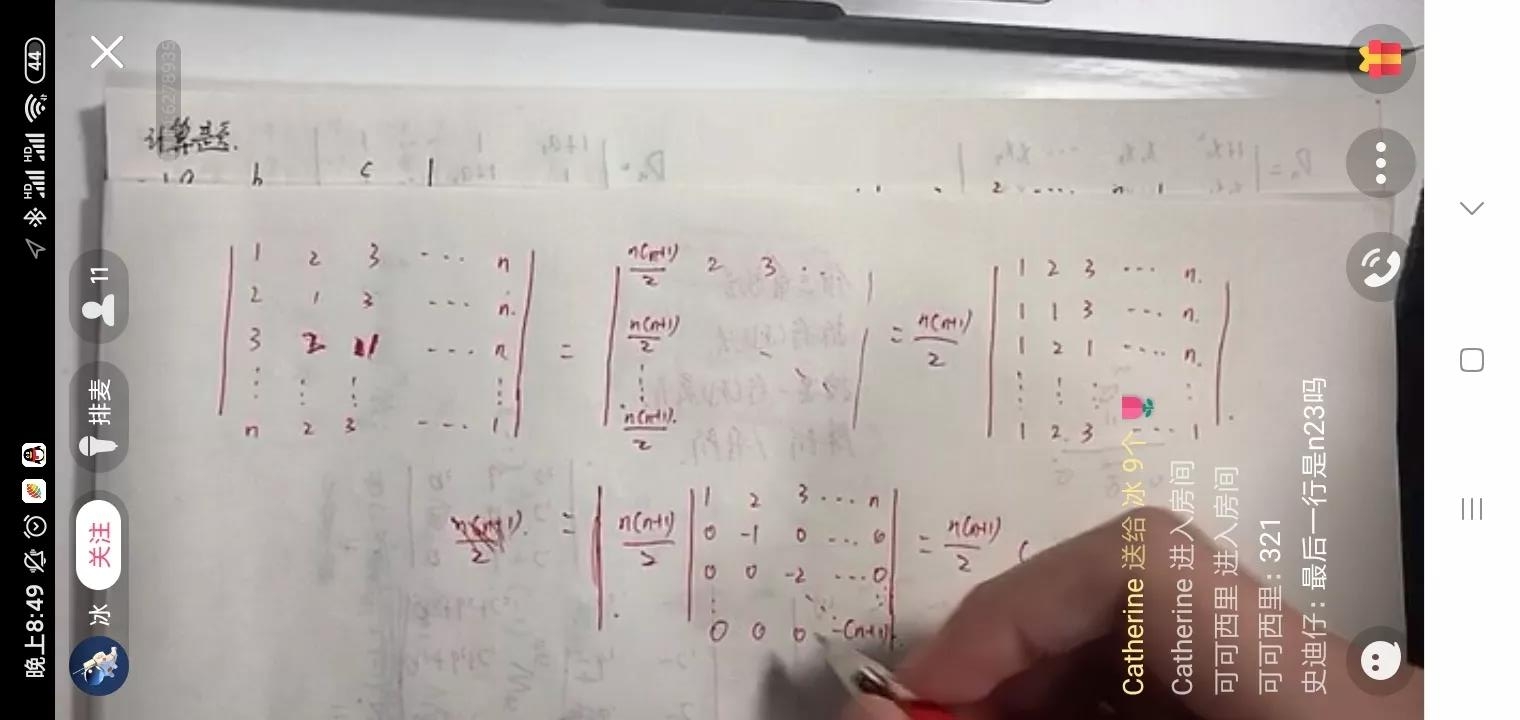 晚上8:49
44
11
排麦
关注
冰
计算
b c
2 .... n 1
1 2 3 ... n
2 1 3 ... n.
3 2 1 ... n
⋮ ⋮ ⋮ ⋮
n 2 3 ... 1
=
n(n+1)/2 2 3 ...
n(n+1)/2
⋮
n(n+1)/2
= n(n+1)/2
1 2 3 ... n.
1 1 3 ... n.
1 2 1 ... n.
⋮ ⋮ ⋮ ⋮
1 2 3 ... 1
n(n+1)/2
= n(n+1)/2
1 2 3 ... n
0 -1 0 ... 0
0 0 -2 ... 0
⋮ ⋱ ⋮
0 0 0 -(n+1)
= n(n+1)/2 (
Catherine 送给 冰 9个
Catherine 进入房间
可可西里 进入房间
可可西里: 321
史迪仔: 最后一行是n23吗